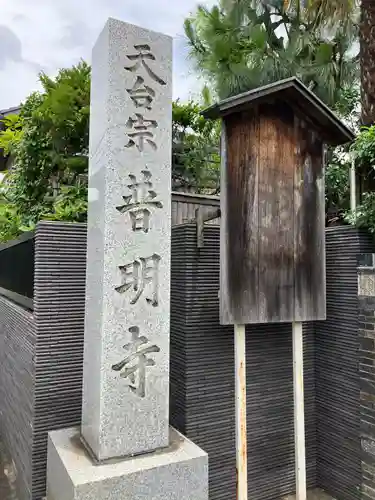 天台宗普明寺